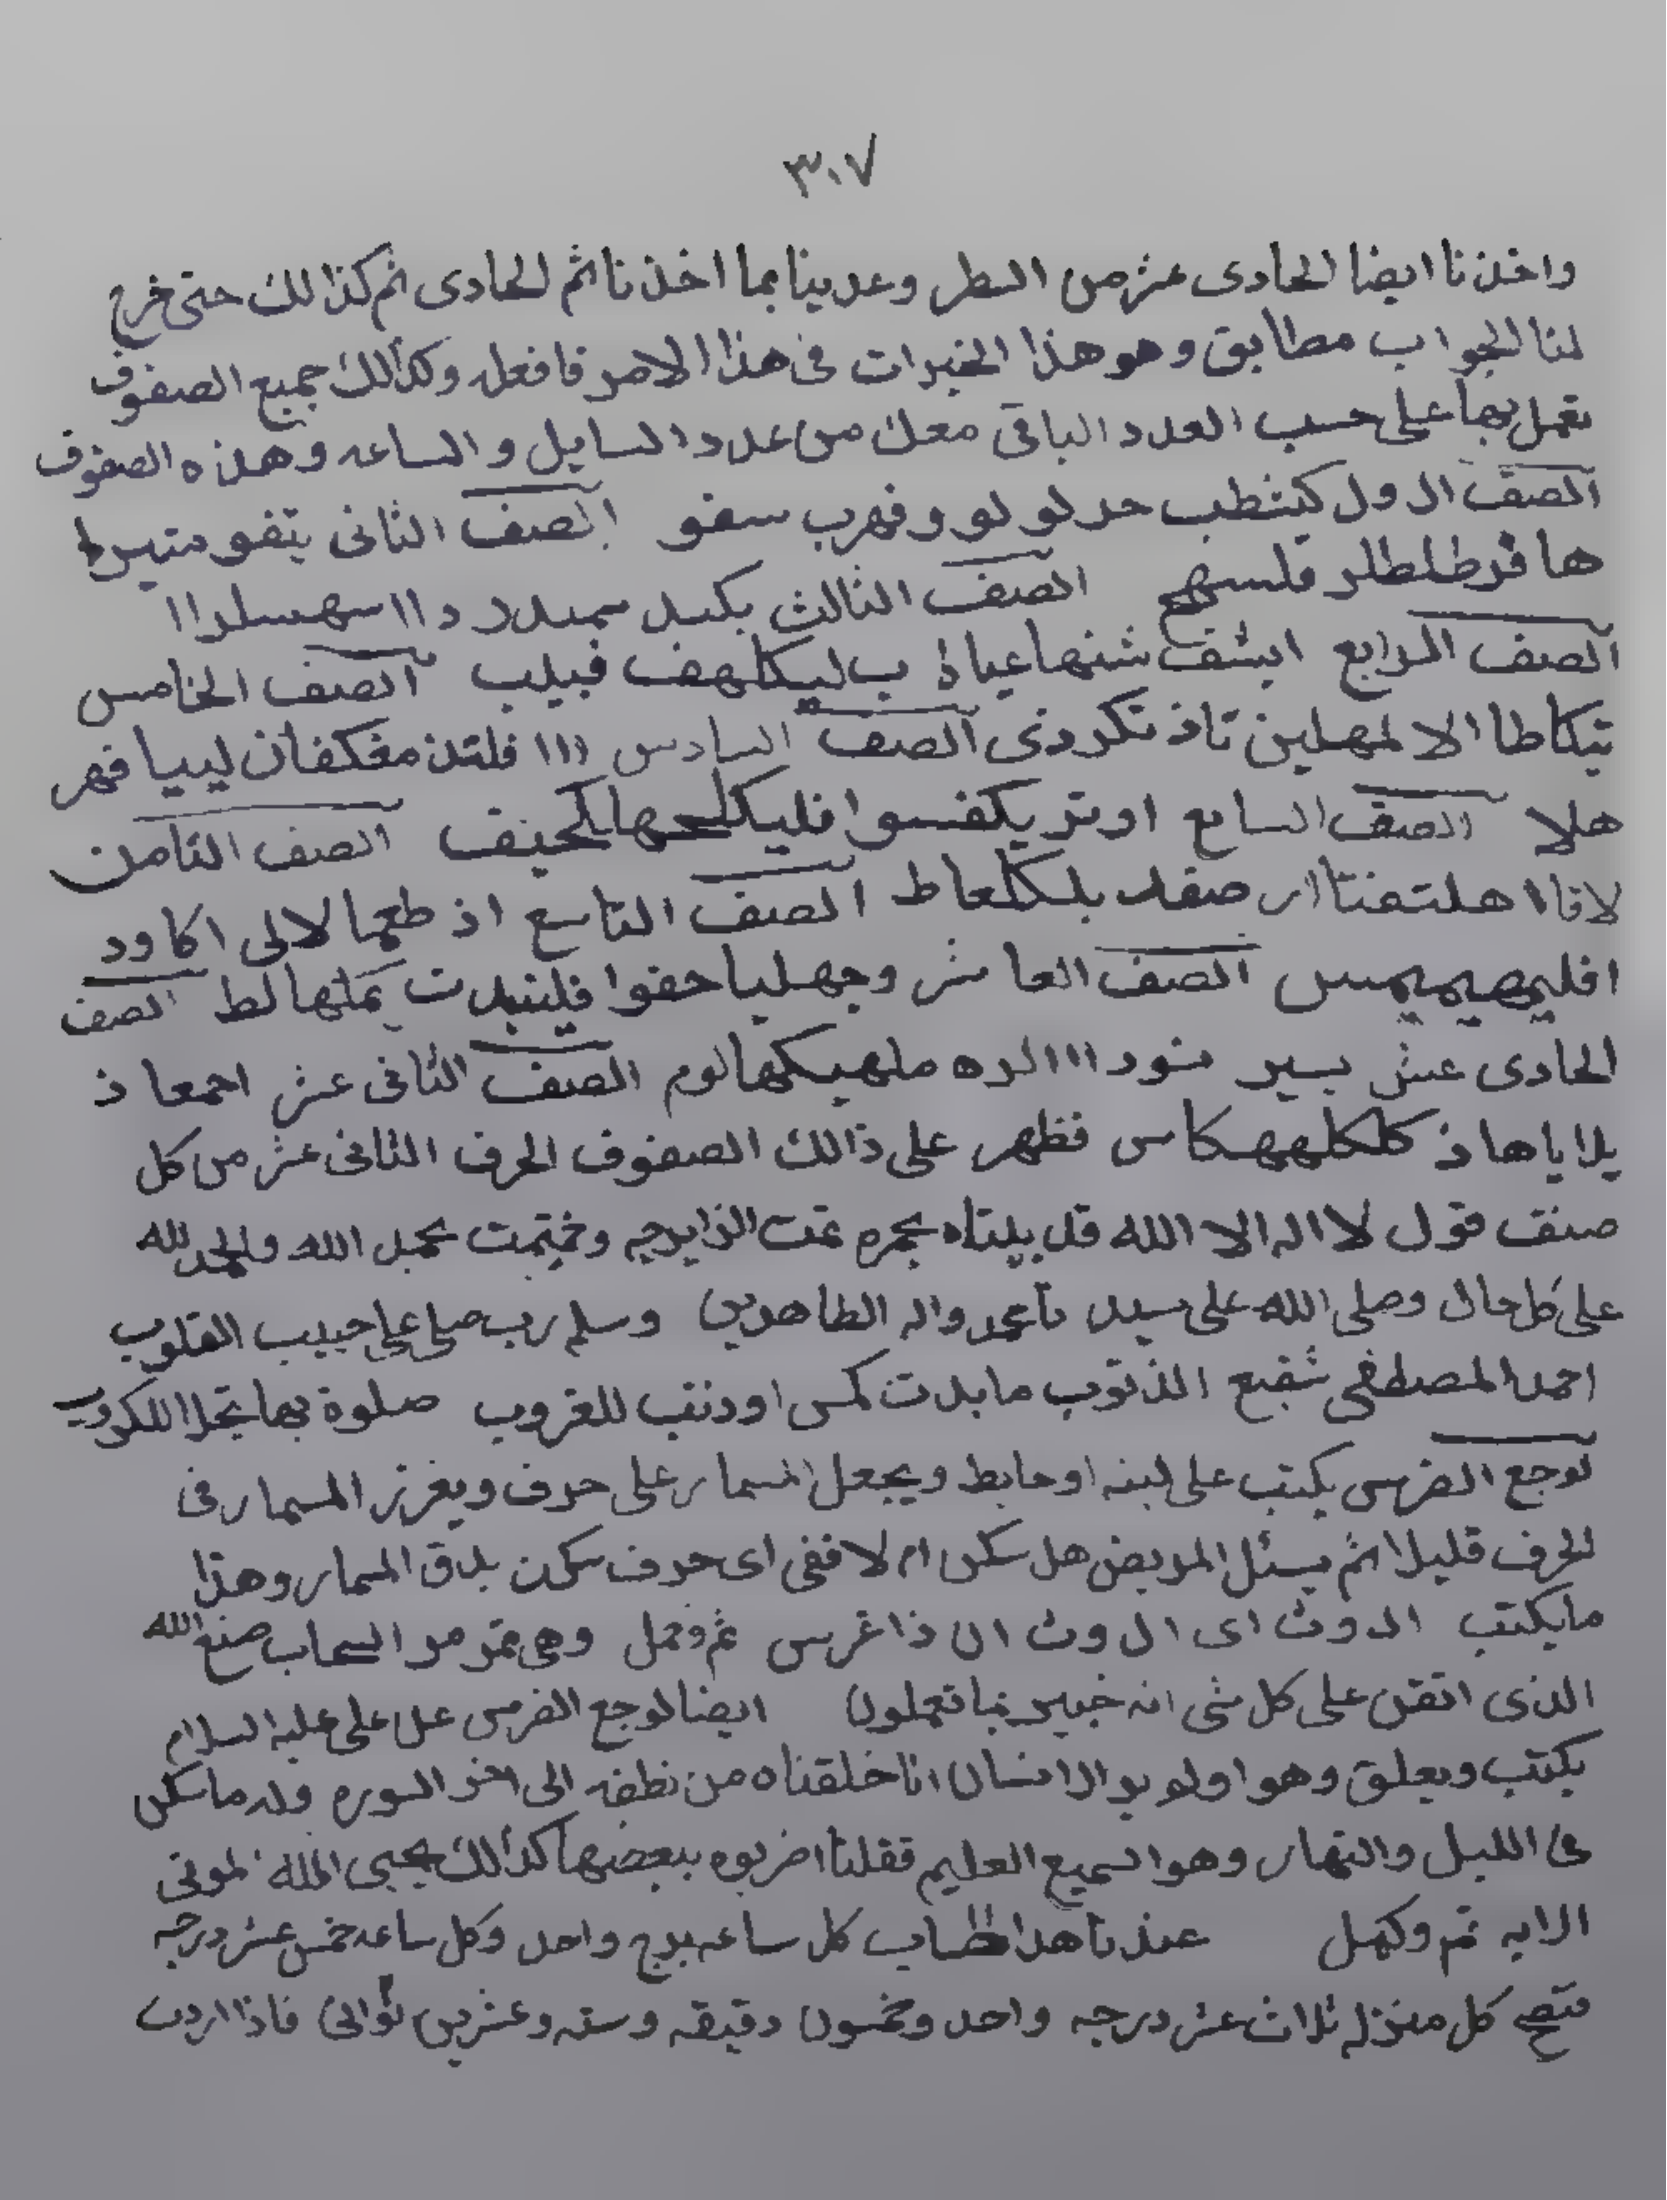 ٣٠٧
واخذنا ايضا الحادى عشر من السطر وعدينا بما اخذنا ثم الحادى ثم كذالك حتى خرج
لنا الجواب مطابق وهو هذا الخيرات فى هذا الامر فافعله وكذالك جميع الصفوف
تعمل بها على حسب العدد الباقى معك من عدد السايل والساعه وهذه الصفوف
الصف الاول كينطب حد لو لو وفهرب سفو الصف الثانى يتفو
ها قرطلطلر فلسهج الصف الثالث بكبد
الصف الرابع ليكلهف فبيلب الصف الخامس
تيكاطا الا لمهلين تاذ تكر ذى الصف السادس ااا فلتذ مغكفان ليبيا فهر
هلا الصف السابع اوتر يكفسوا الصف الثامن
بلكلعاط الصف التاسع اذ طعما لالى اكا ود
الصف العاشر وجهليا حفوا تملها لط الصف
الحادى عشر بسير الصف الثانى عشر احمعا ذ
يلا ياها ذ كلكلهكاس فظهر على ذالك الصفوف الحرف الثانى عشر من كل
صنف قول لا اله الا الله تمت الزايرجه وختمت بحمد الله والحمد لله
على كل حال وصلى الله على سيدنا محمد واله الطاهرين وسلم رب صلى على حبيب القلوب
احمد المصطفى شفيع الذنوب ما بدت شمس اودنت للغروب صلوة بها تجلا الكروب
لوجع الضرس يكتب على لبنه او حايط ويجعل المسمار على حرف ويغرز المسمار فى
الحرف قليلا ثم يسئل المريض هل سكن ام لا ففى اى حرف سكن يدق المسمار وهذا
ما يكتب ال وث اى ال وث ان ذا غرس تم وكمل وهى تمر مر السحاب صنع الله
الذى اتقن على كل شى انه خبير بما تعملون ايضا لوجع الضرس عن على عليه السلام
يكتب ويعلق وهو اولم ير الانسان انا خلقناه من نطفه الى اخر السوره وله ما سكن
فى الليل والنهار وهو السميع العليم فقلنا اضربوه ببعضها كذالك يحيى الله الموتى
الايه تم وكمل عندنا هذا الحساب كل ساعه برج واحد وكل ساعه خمس عشر درجه
فتصح كل منزله ثلاث عشر درجه واحد وخمسون دقيقه وسته وعشرين ثوانى فاذا اردت